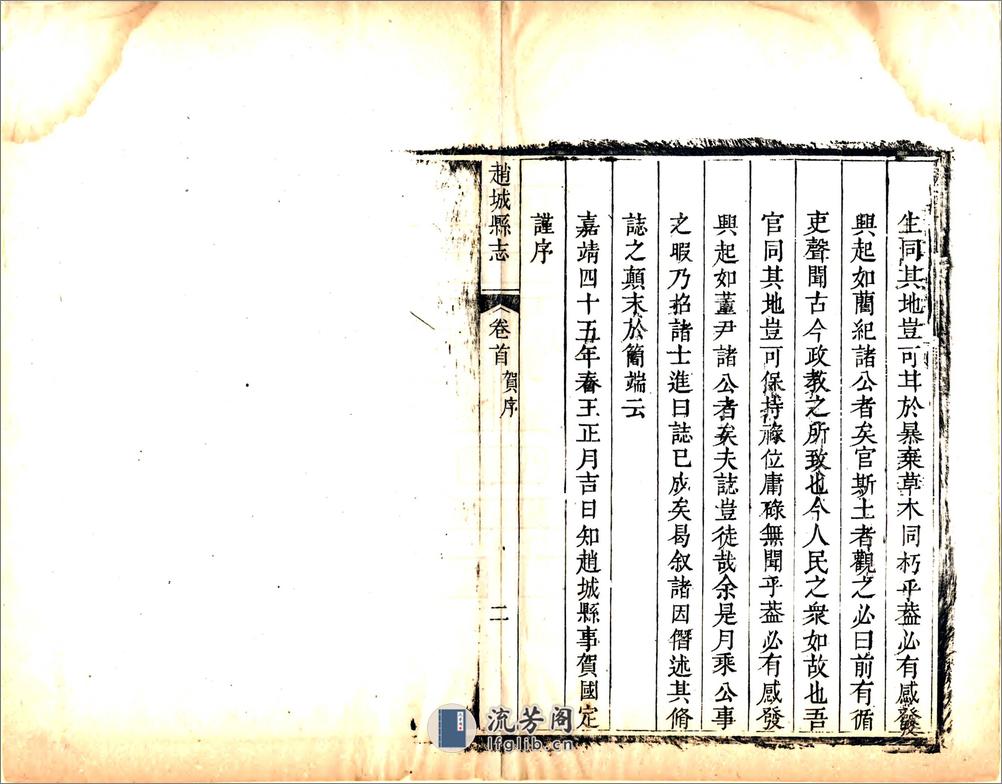 生同其地豈可甘於暴棄草木同朽乎葢必有感發
興起如藺紀諸公者矣官斯土者觀之必曰前有循
吏聲聞古今政教之所致也今人民之衆如故也吾
官同其地豈可保持祿位庸碌無聞乎葢必有感發
興起如董尹諸公者矣夫誌豈徒哉余是月乘公事
之暇乃招諸士進曰誌已成矣曷叙諸因僭述其脩
誌之顛末於簡端云
嘉靖四十五年春王正月吉日知趙城縣事賀國定
謹序
趙城縣志
卷首
賀序
二
流芳阁
lfglib.cn